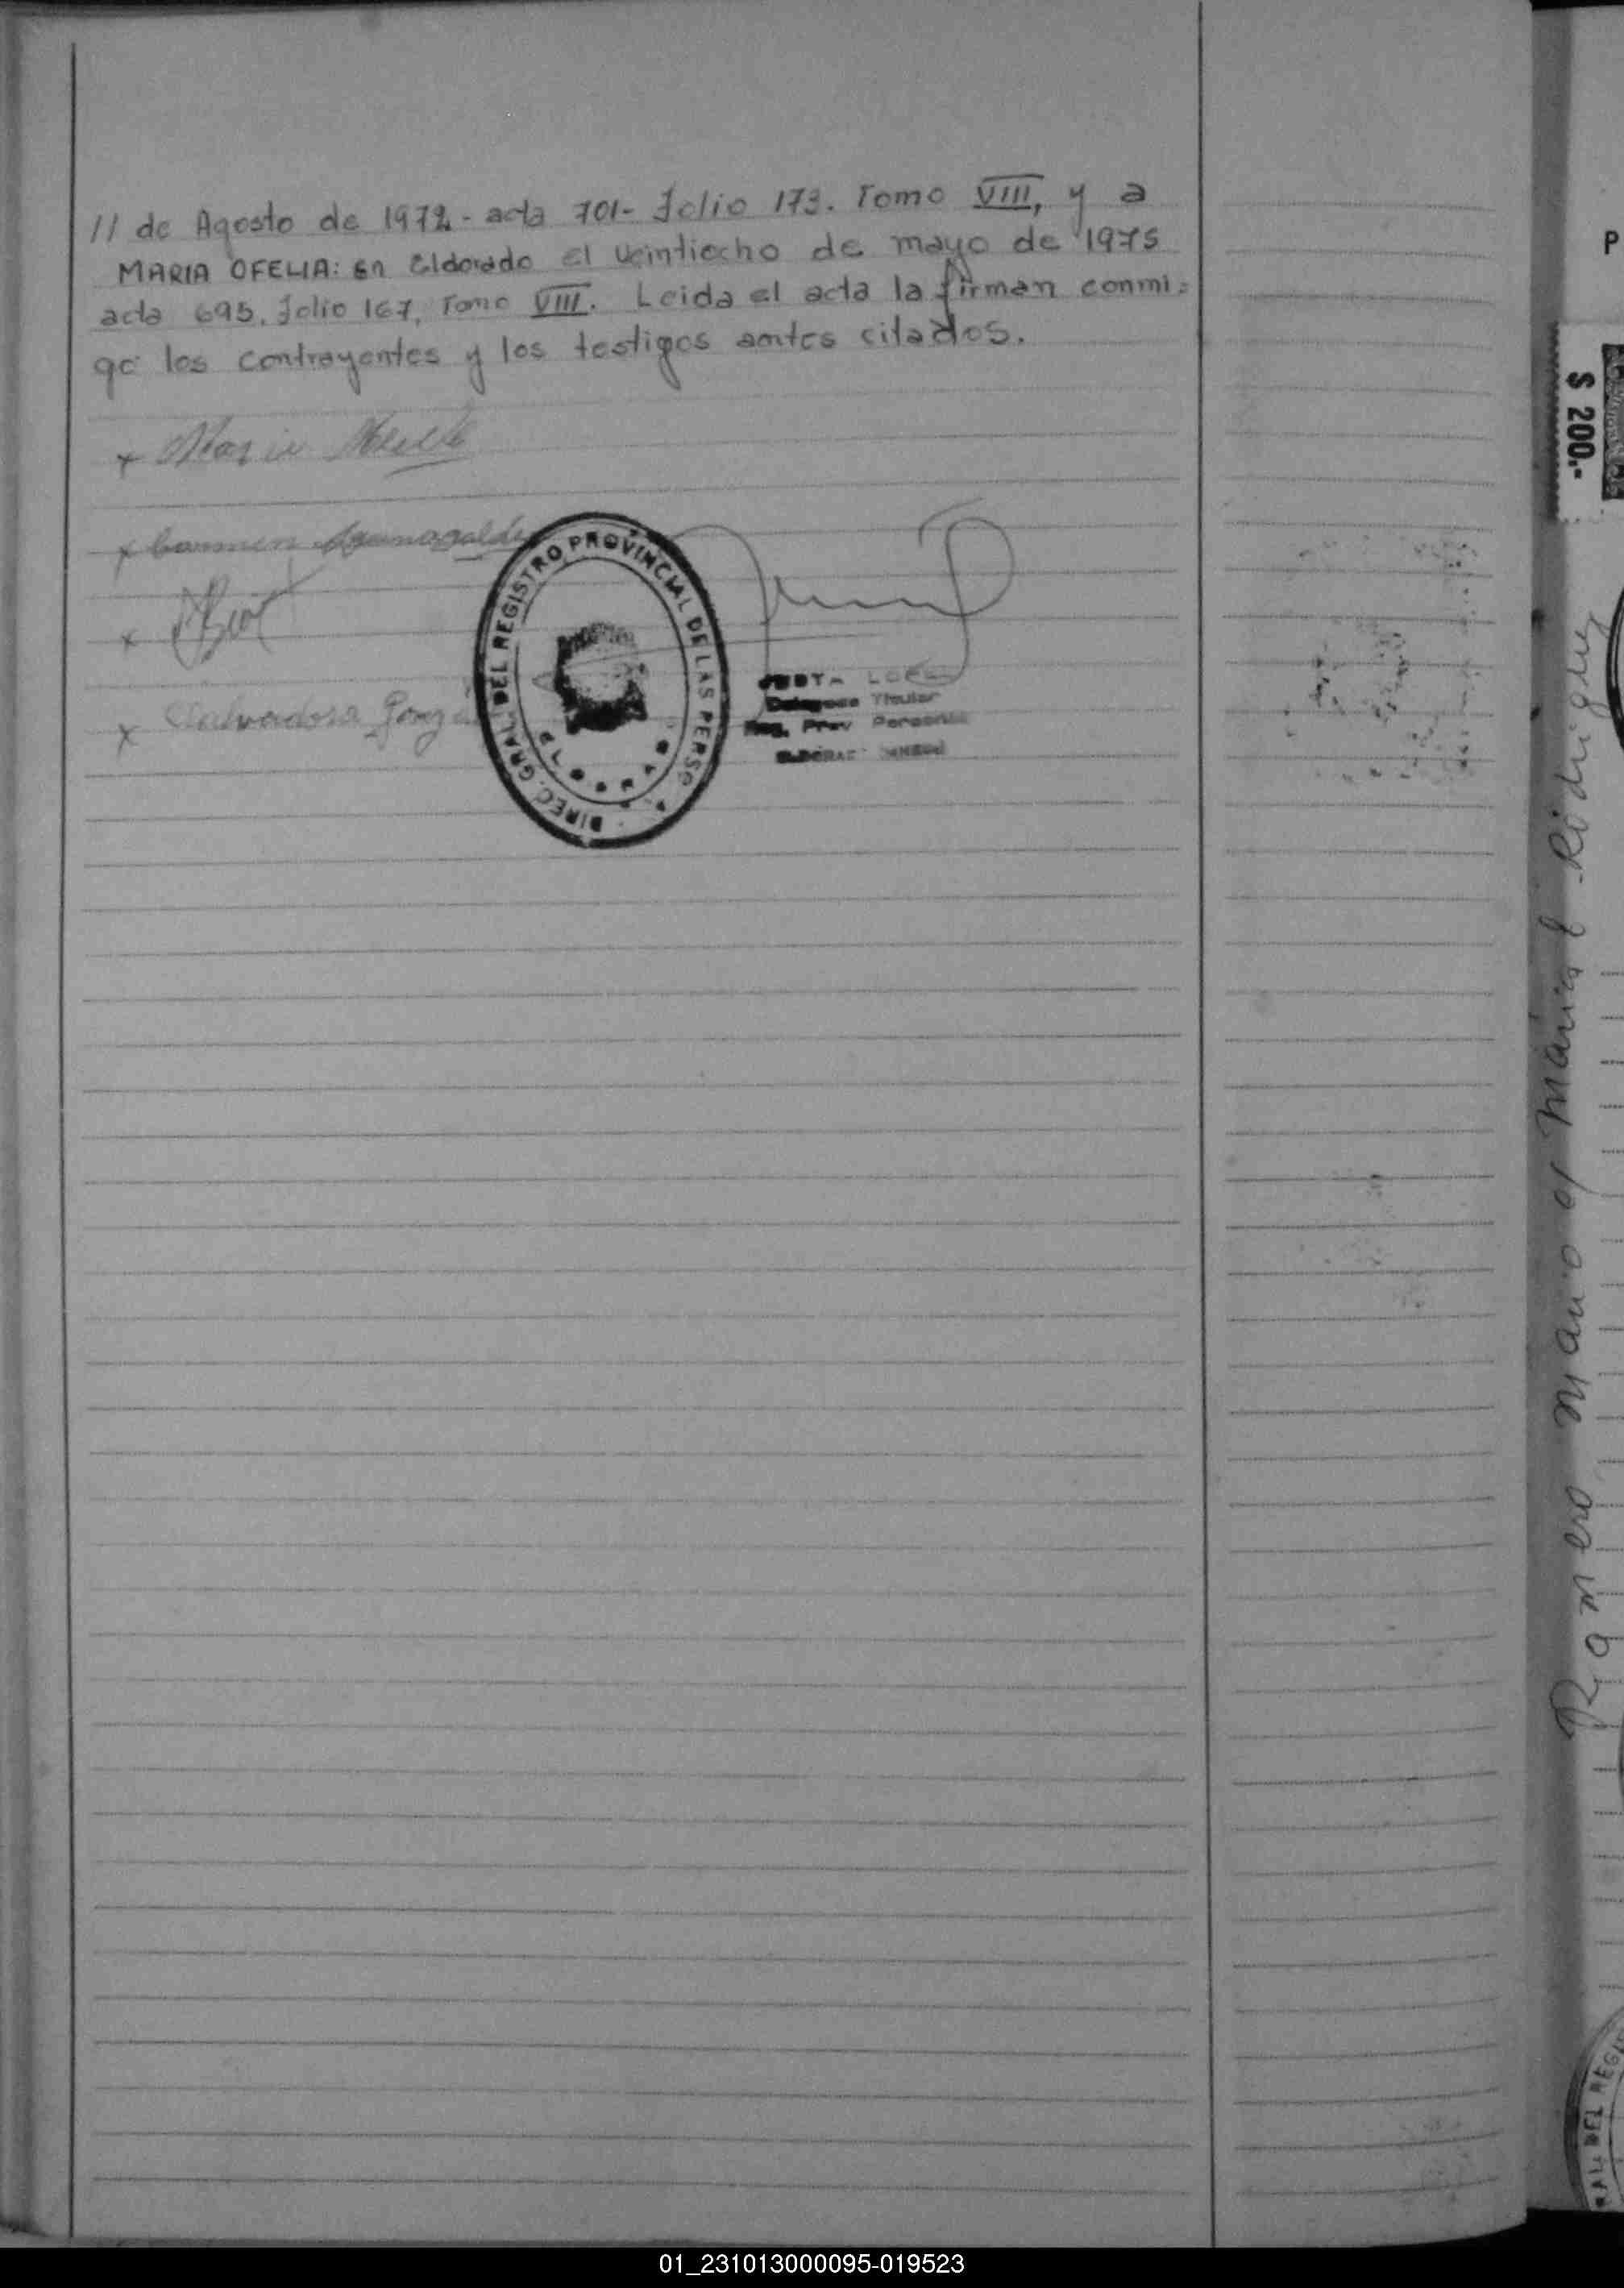 11 de Agosto de 1972 - acta 701 - Folio 173. Tomo VIII, y a
MARIA OFELIA: En Eldorado el veintiocho de mayo de 1975
acta 695, Folio 167, Tomo VIII. Leida el acta la firman conmi=
go los contrayentes y los testigos antes citados.
x Maria
x Carmen
x
x Salvadora Gonzá
DIREC. GRAL. DEL REGISTRO PROVINCIAL DE LAS PERSO
ELDORADO
LOPE
Delegada Titular
Reg. Prov Personas
P
$ 200.-
Romero Mario c/ Maria Rodriguez
RAL. DEL REG
01_231013000095-019523